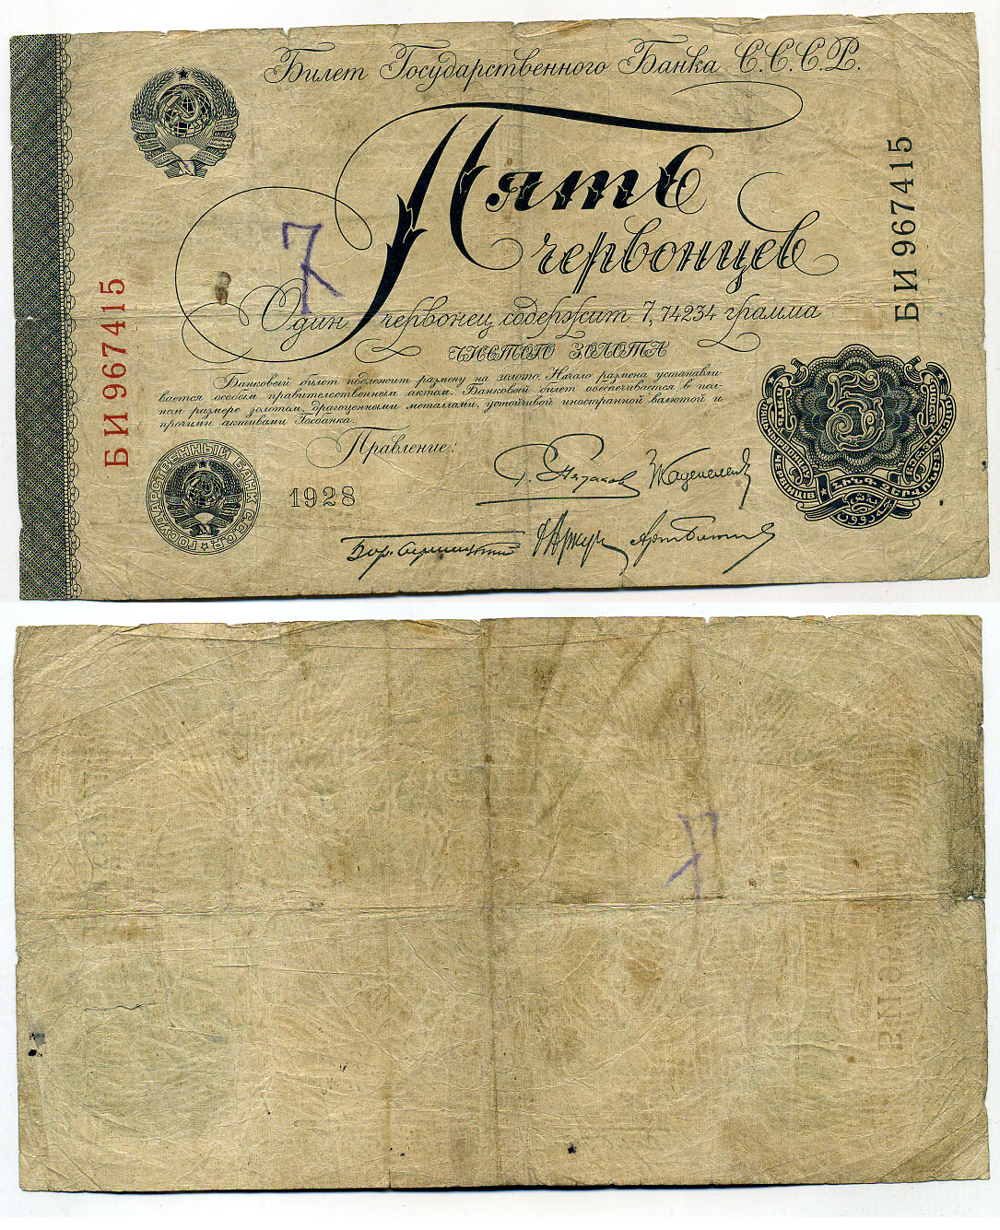 Билет Государственного Банка С.С.С.Р.
Пять
червонцев
БИ 967415
7
Один червонец содержит 7,74234 грамма
чистого золота
БИ 967415
Банковый билет подлежит размену на золото. Начало размена устанавли-
вается особым правительственным актом. Банковый билет обеспечивается в пол-
ном размере золотом, драгоценными металами, устойчивой иностранной валютой и
прочими активами Госбанка.
Правление:
ГОСУДАРСТВЕННЫЙ БАНК С.С.С.Р.
1928
5
ЧЕРВОНЦІВ
7